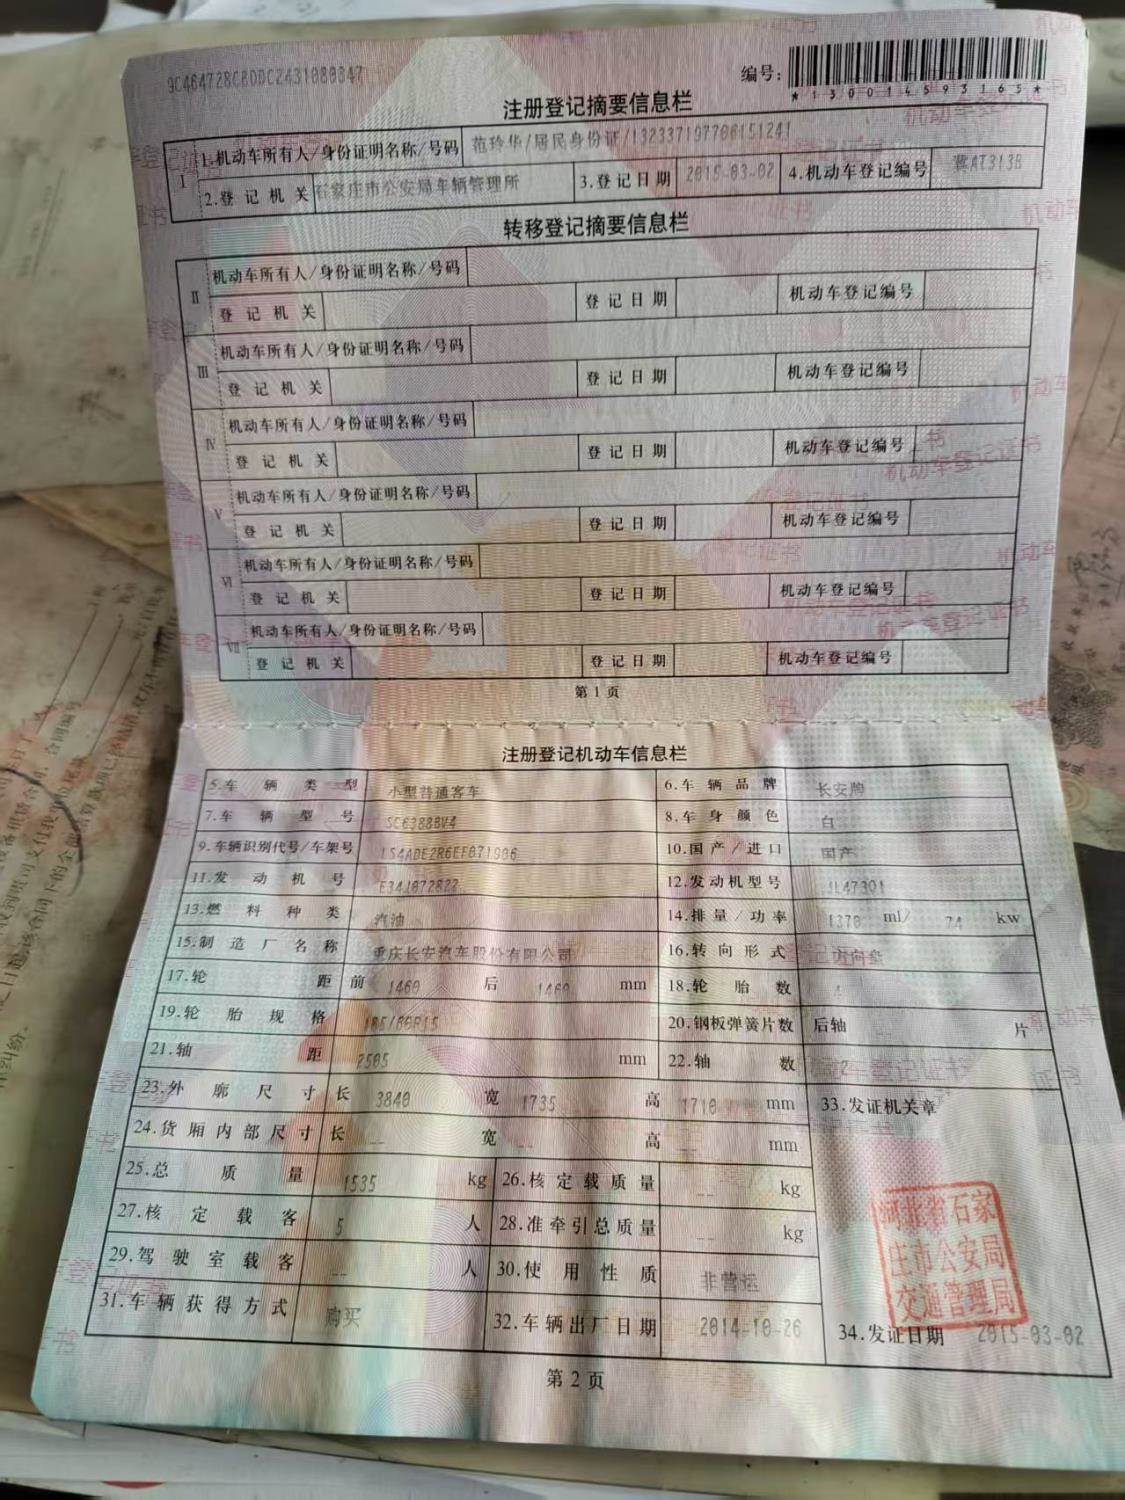 编号:
*130014593165*
注册登记摘要信息栏
1 1.机动车所有人/身份证明名称/号码 范玲华/居民身份证/132337197706151241
2.登记机关 石家庄市公安局车辆管理所 3.登记日期 2015-03-02 4.机动车登记编号 冀AT313B
转移登记摘要信息栏
II 机动车所有人/身份证明名称/号码
登记机关 登记日期 机动车登记编号
III 机动车所有人/身份证明名称/号码
登记机关 登记日期 机动车登记编号
IV 机动车所有人/身份证明名称/号码
登记机关 登记日期 机动车登记编号
V 机动车所有人/身份证明名称/号码
登记机关 登记日期 机动车登记编号
VI 机动车所有人/身份证明名称/号码
登记机关 登记日期 机动车登记编号
VII 机动车所有人/身份证明名称/号码
登记机关 登记日期 机动车登记编号
第1页
注册登记机动车信息栏
5.车辆类型 小型普通客车 6.车辆品牌 长安牌
7.车辆型号 SC6388BV4 8.车身颜色 白
9.车辆识别代号/车架号 LS4ADE2R6EF071906 10.国产/进口 国产
11.发动机号 E34J072822 12.发动机型号 JL473Q1
13.燃料种类 汽油 14.排量/功率 1370 ml/ 74 kw
15.制造厂名称 重庆长安汽车股份有限公司 16.转向形式
17.轮距 前 1460 后 1460 mm 18.轮胎数 4
19.轮胎规格 185/60R15 20.钢板弹簧片数 后轴 片
21.轴距 2505 mm 22.轴数 2
23.外廓尺寸 长 3840 宽 1735 高 1710 mm 33.发证机关章
24.货厢内部尺寸 长 -- 宽 -- 高 -- mm
25.总质量 1535 kg 26.核定载质量 -- kg
27.核定载客 5 人 28.准牵引总质量 -- kg
29.驾驶室载客 -- 人 30.使用性质 非营运
河北省石家
庄市公安局
交通管理局
31.车辆获得方式 购买 32.车辆出厂日期 2014-10-26 34.发证日期 2015-03-02
第2页